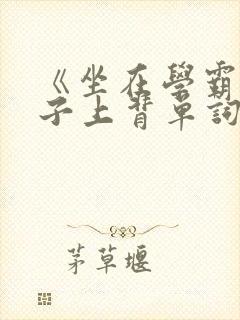 《坐在學霸
子上背單詞
茅草堰